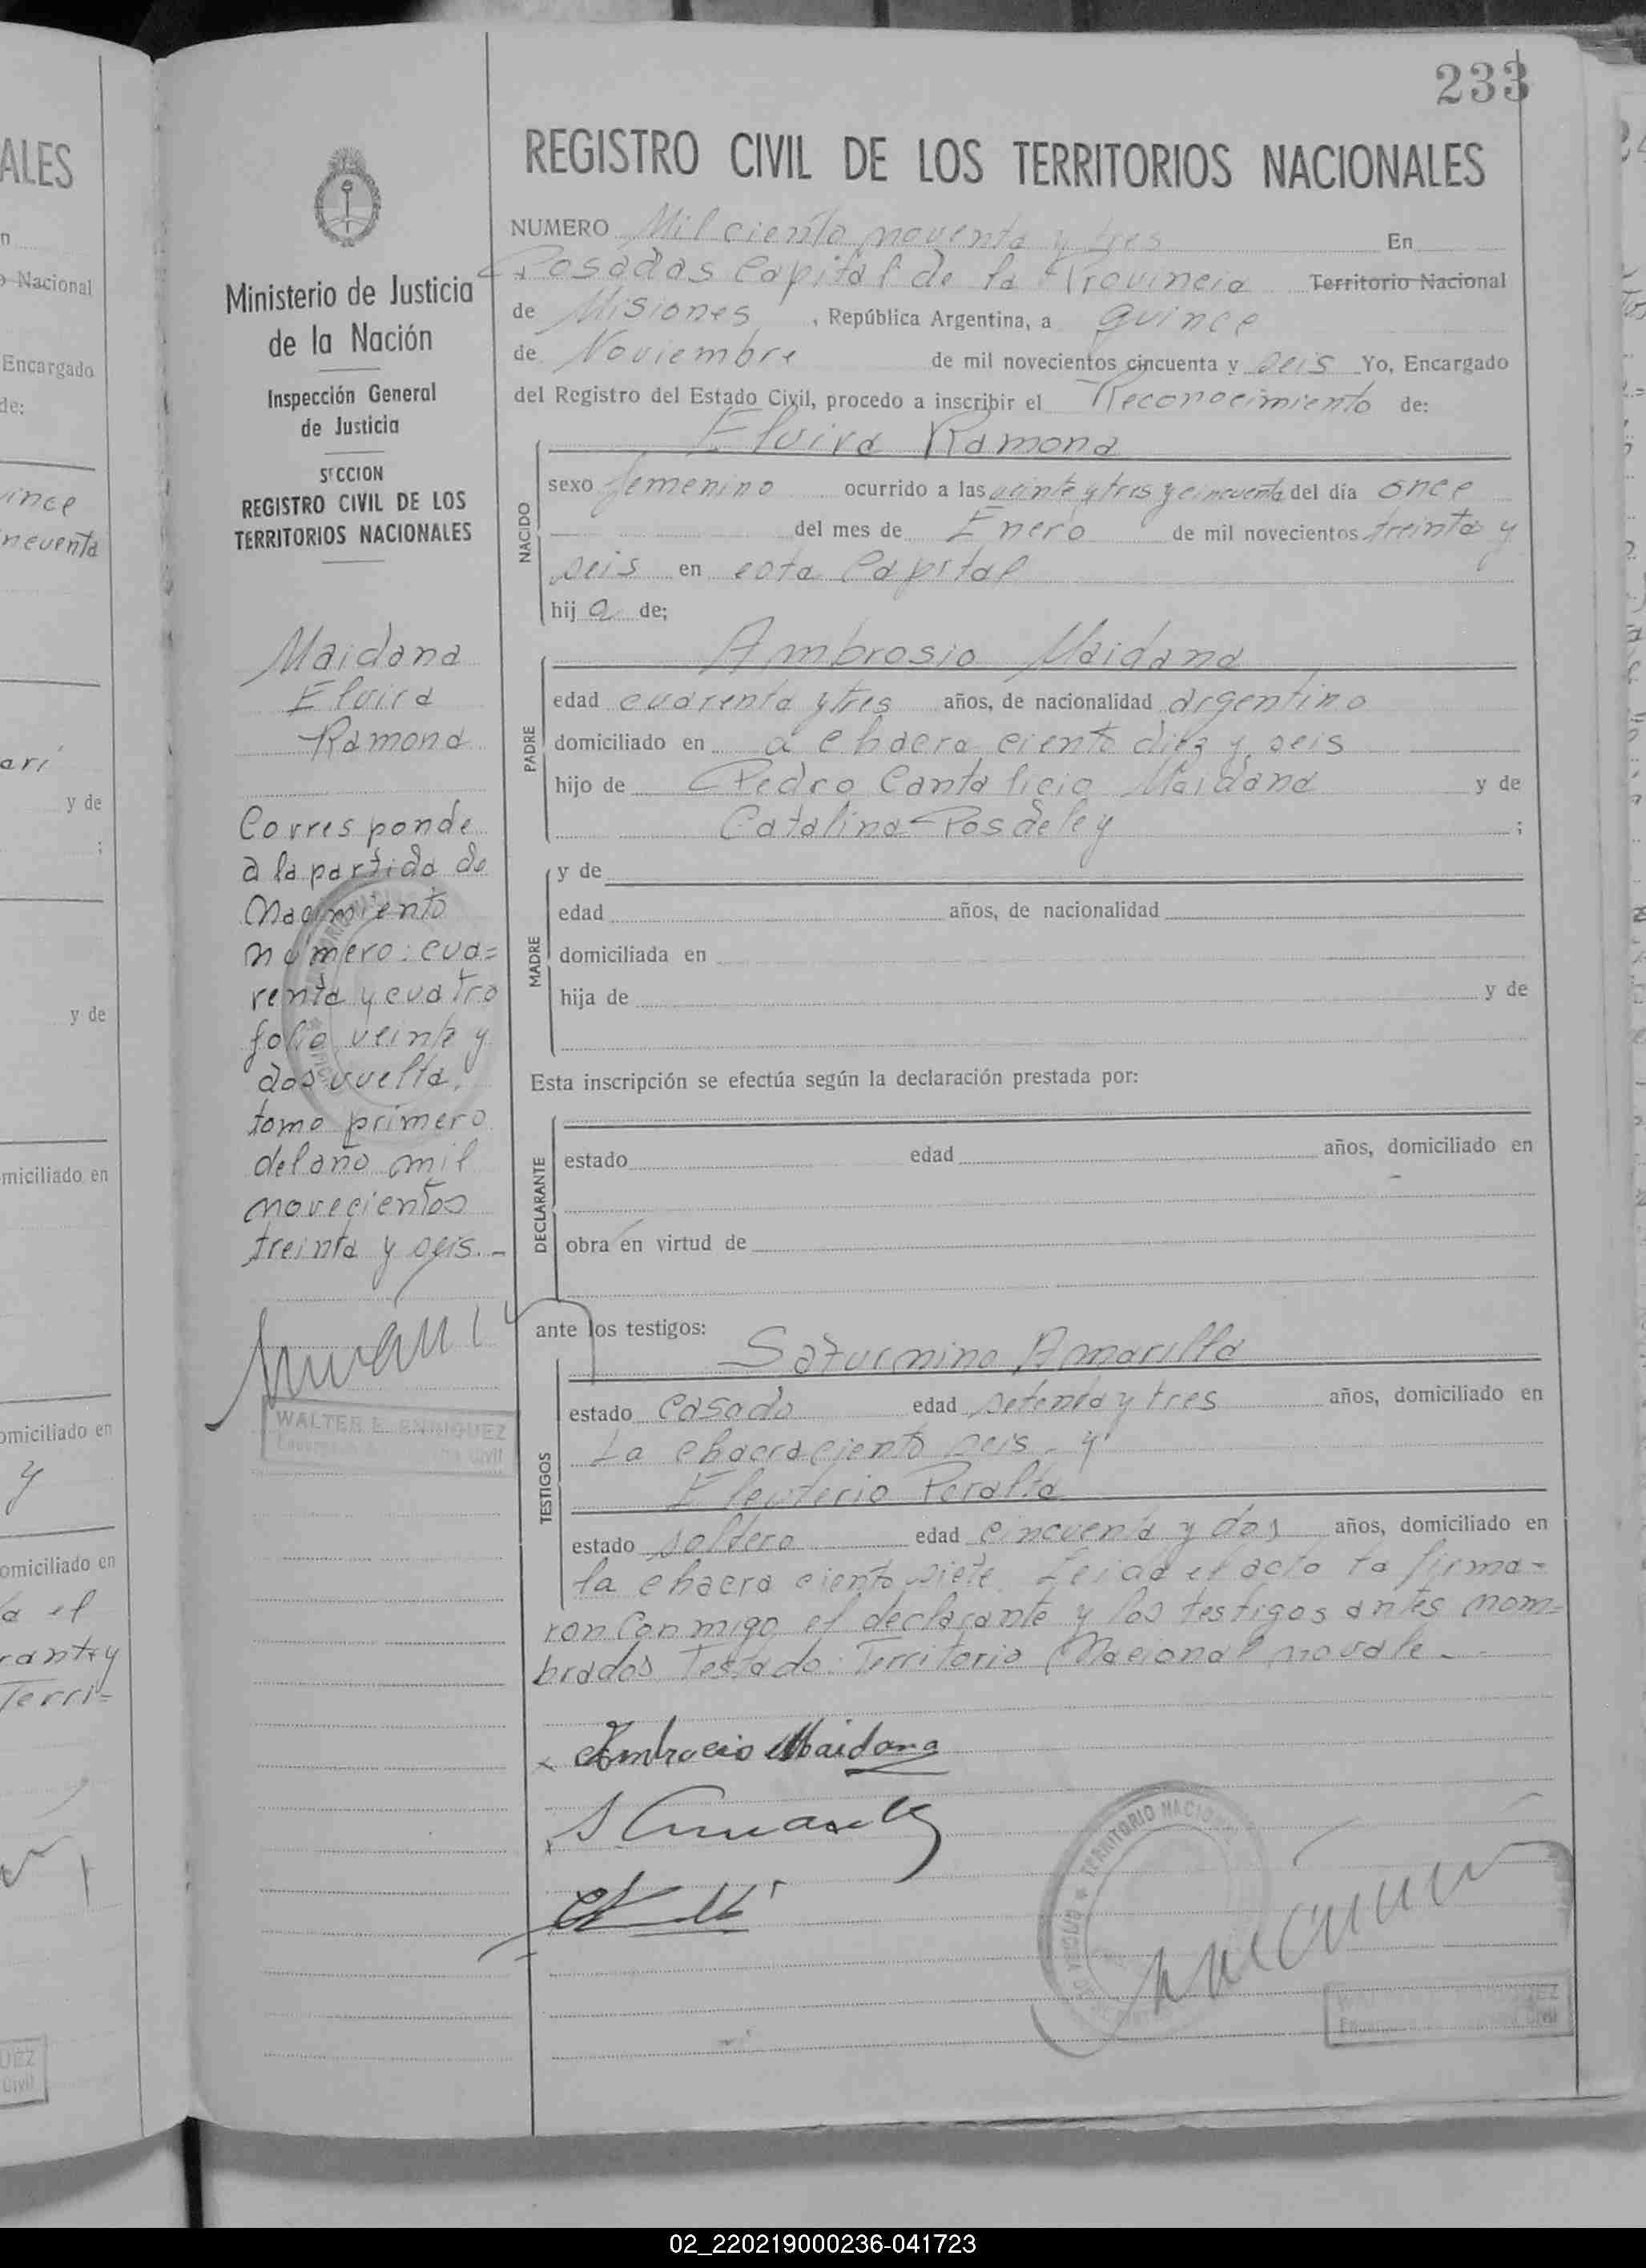 233
REGISTRO CIVIL DE LOS TERRITORIOS NACIONALES
NUMERO Mil ciento noventa y tres En
Posadas Capital de la Provincia Territorio Nacional
de Misiones , República Argentina, a quince
de Noviembre de mil novecientos cincuenta y seis Yo, Encargado
del Registro del Estado Civil, procedo a inscribir el Reconocimiento de:
NACIDO
Elvira Ramona
sexo femenino ocurrido a las veinte y tres y cincuenta del día once
del mes de Enero de mil novecientos treinta y
seis en esta Capital
hij a de;
PADRE
Ambrosio Maidana
edad cuarenta y tres años, de nacionalidad argentino
domiciliado en a chacra ciento diez y seis
hijo de Pedro Cantalicio Maidana y de
Catalina Posdeley ;
MADRE
y de
edad años, de nacionalidad
domiciliada en
hija de y de
Esta inscripción se efectúa según la declaración prestada por:
DECLARANTE
estado edad años, domiciliado en
obra en virtud de
ante los testigos:
TESTIGOS
Saturnino Amarilla
estado Casado edad setenta y tres años, domiciliado en
La chacra ciento seis - y
Eleuterio Peralta
estado soltero edad cincuenta y dos años, domiciliado en
la chacra ciento siete. Leida el acta la firma=
ron conmigo el declarante y los testigos antes nom=
brados Testado: Territorio Nacional no vale.-
Ambrocio Maidana
TERRITORIO NACION
Ministerio de Justicia
de la Nación
Inspección General
de Justicia
SECCION
REGISTRO CIVIL DE LOS
TERRITORIOS NACIONALES
Maidana
Elvira
Ramona
Corresponde
a la partida de
Nacimiento
número: cua=
renta y cuatro
folio veinte y
dos vuelta,
tomo primero
del año mil
novecientos
treinta y seis.-
WALTER E. ENRIQUEZ
ALES
n
o Nacional
Encargado
de:
ince
ncuenta
ari
y de
;
y de
miciliado en
omiciliado en
y
omiciliado en
a el
rante y
Terri=
UEZ
Civil
02_220219000236-041723